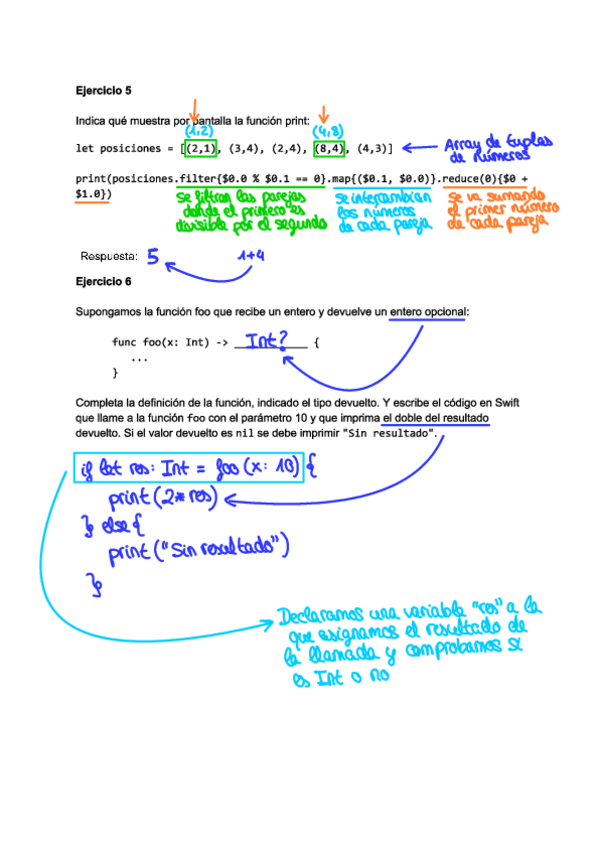 Ejercicio 5
Indica qué muestra por pantalla la función print:
(1,2) (4,8)
let posiciones = [(2,1), (3,4), (2,4), (8,4), (4,3)]
Array de tuplas
de números
print(posiciones.filter{$0.0 % $0.1 == 0}.map{($0.1, $0.0)}.reduce(0){$0 +
$1.0})
se filtran las parejas
donde el primero es
divisible por el segundo
se intercambian
los números
de cada pareja
se va sumando
el primer número
de cada pareja
Respuesta: 5 1+4
Ejercicio 6
Supongamos la función foo que recibe un entero y devuelve un entero opcional:
func foo(x: Int) -> Int? {
...
}
Completa la definición de la función, indicado el tipo devuelto. Y escribe el código en Swift
que llame a la función foo con el parámetro 10 y que imprima el doble del resultado
devuelto. Si el valor devuelto es nil se debe imprimir "Sin resultado".
if let res: Int = foo(x: 10) {
print(2* res)
} else {
print("Sin resultado")
}
Declaramos una variable "res" a la
que asignamos el resultado de
la llamada y comprobamos si
es Int o no